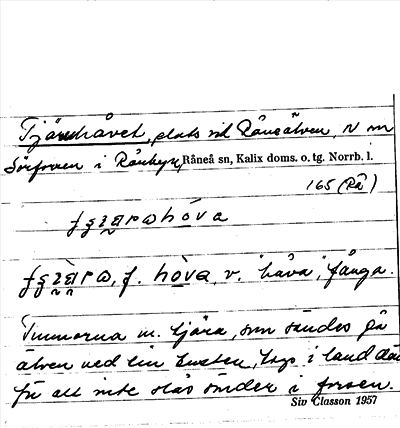 Tjäruhåvet, plats vid Råneälven, N om
Sörforsen i Rånbyn, Råneå sn, Kalix doms. o. tg. Norrb. l.
165 (Rå)
f. hòva, v. "håva", fånga.
Tunnorna m. tjära, som sändes på
älven ned till kusten, togs i land där
för att inte slås sönder i forsen.
Siv Classon 1957